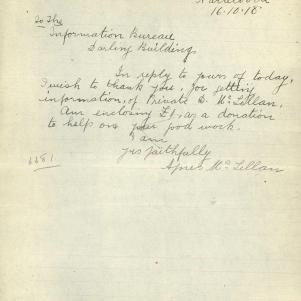 16.10.18
To The
Information Bureau
Darling Building
In reply to yours of today,
I wish to thank you, for getting
information, of Private D. McLellan.
Am enclosing £1, as a donation
to help on your good work.
I am
yrs faithfully
Agnes McLellan
6681